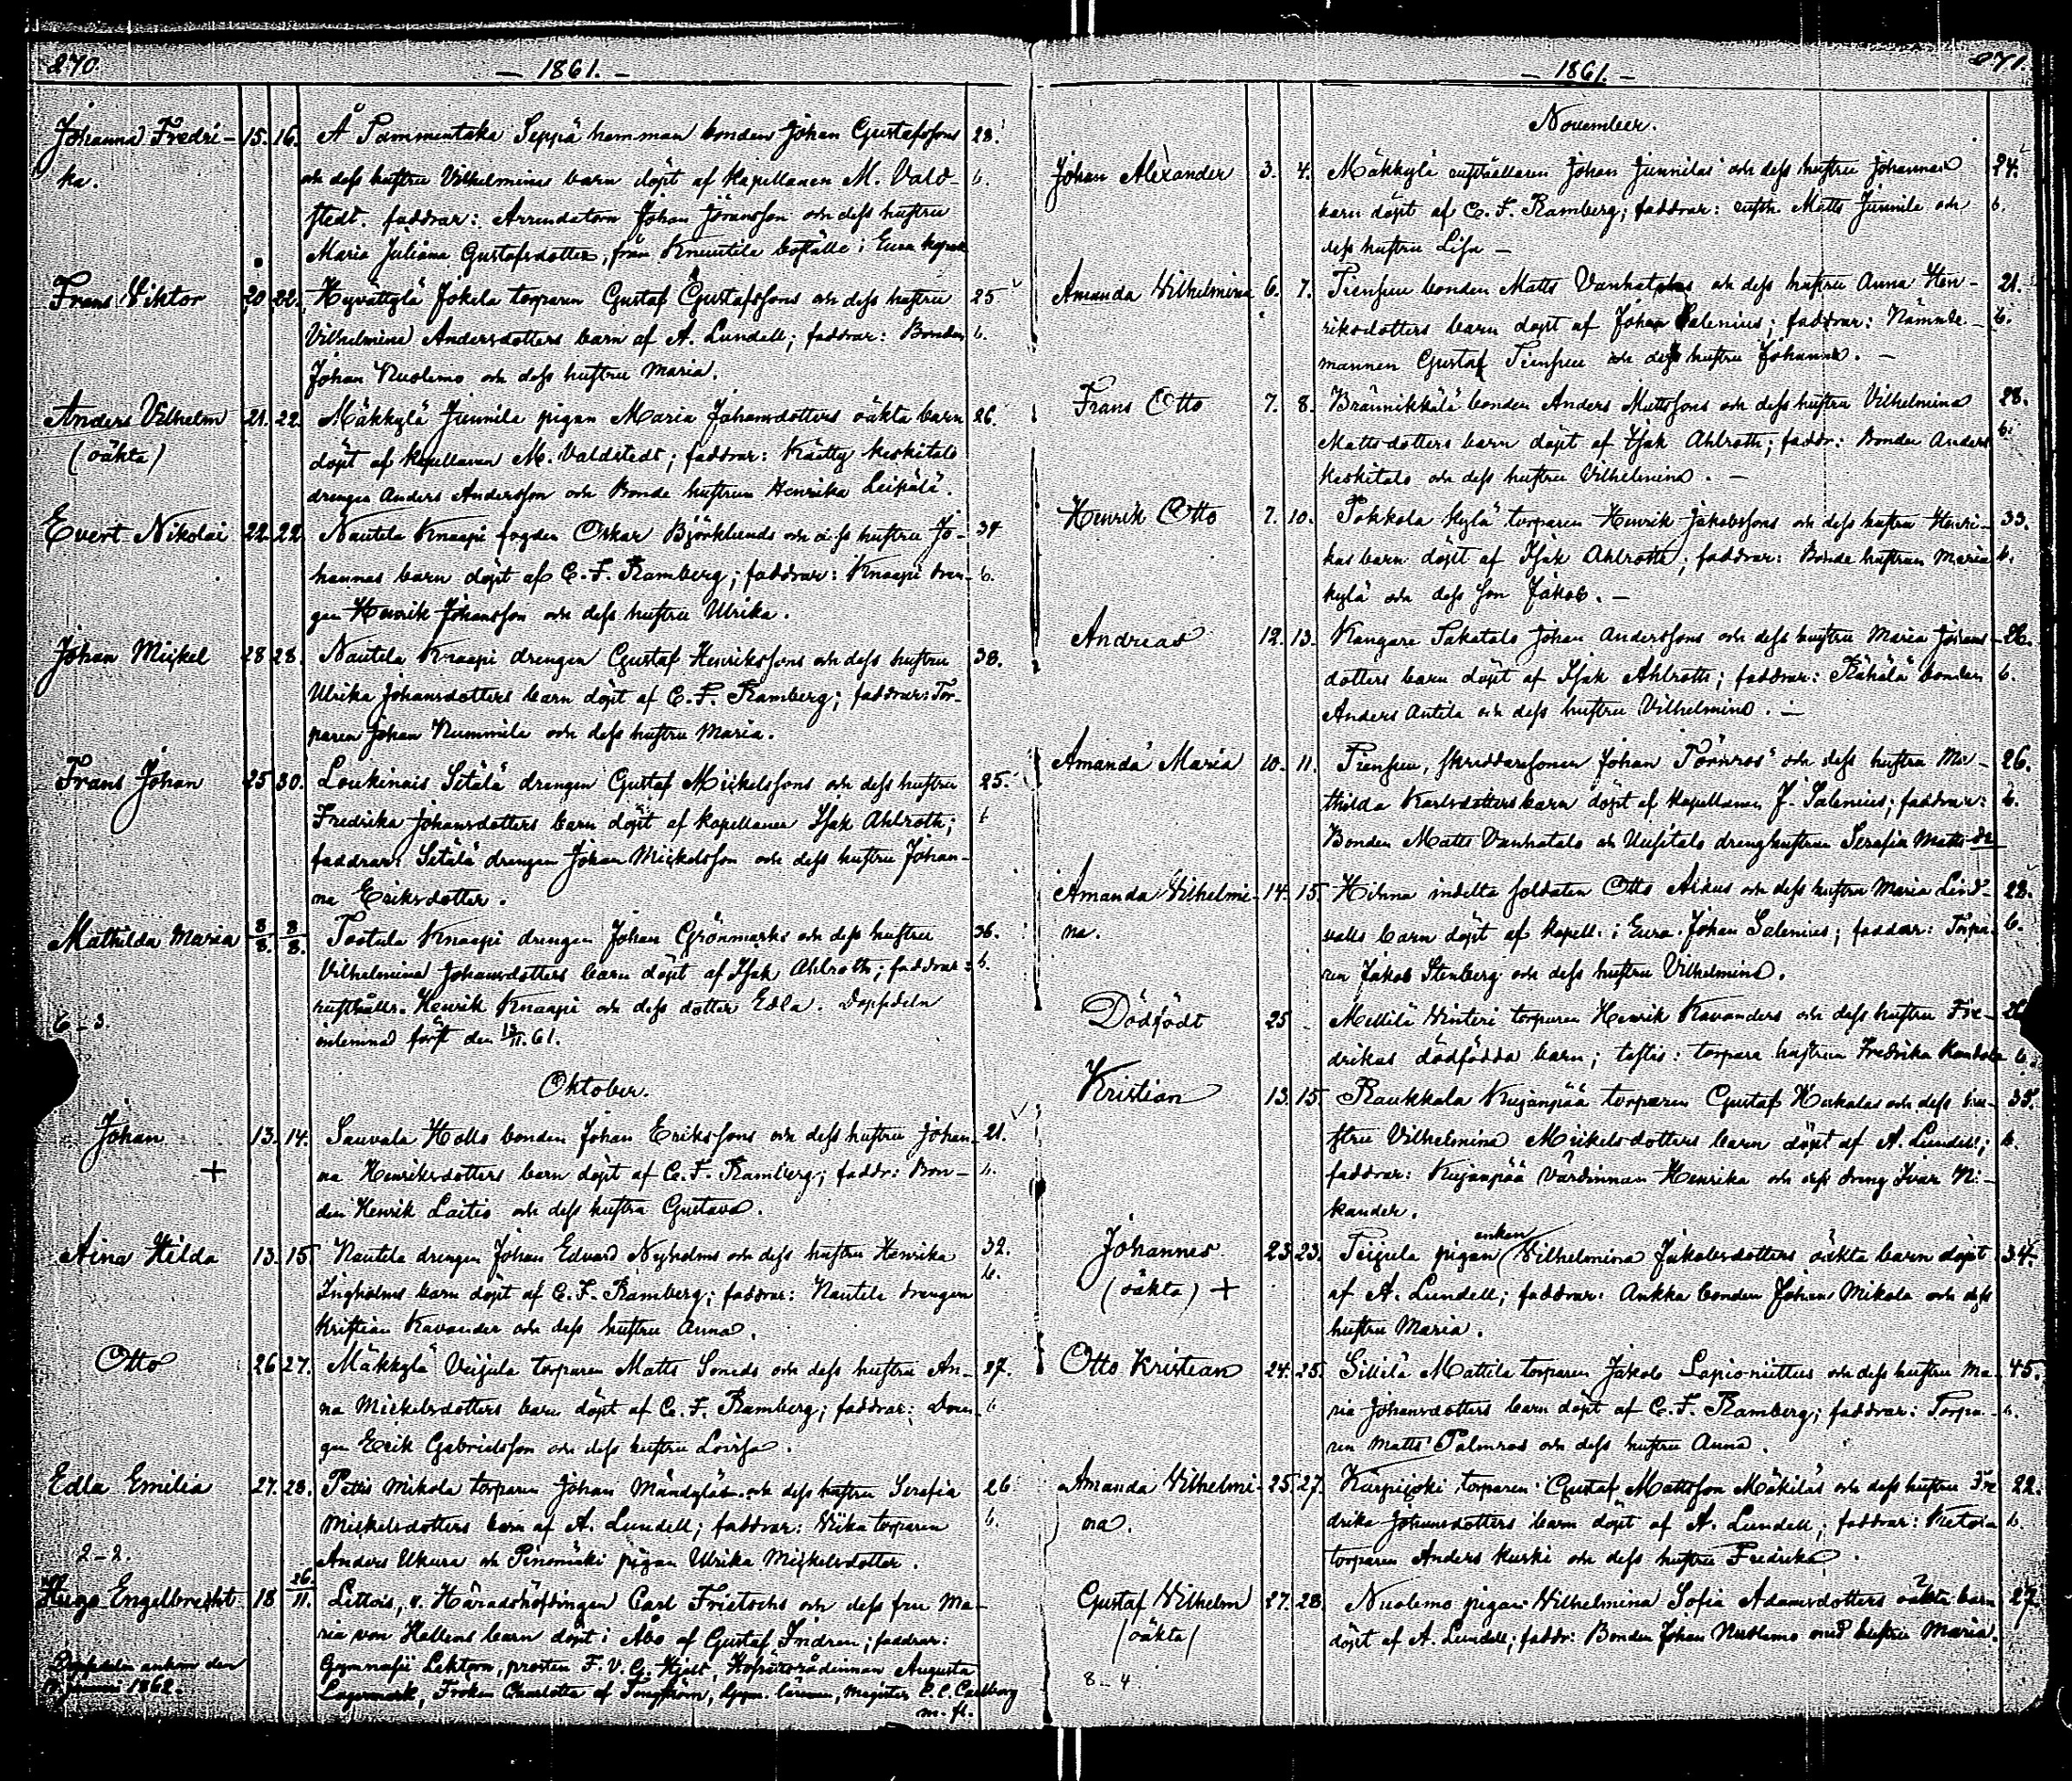 270.
— 1861. —
Johanna Fredri- 15. 16. Å Pammentaka Seppä hemman bonden Johan Gustafssons 28.
ka. och dess hustru Vilhelminas barn döpt af kapellanen M. Vald- b.
stedt. faddrar: Arrendatorn Johan Jöransson och dess hustru
Maria Juliana Gustafsdotter, från Knuutila boställe i Eura kapell
Frans Viktor 20. 22. Hyvättylä Jokela torparen Gustaf Gustafssons och dess hustru 25
Vilhelmina Andersdotters barn af A. Lundell; faddrar: Bonden b.
Johan Nuolemo och dess hustru Maria.
Anders Vilhelm 21. 22. Mäkkylä Junnila pigan Maria Johansdotters oäkta barn 26.
(oäkta) döpt af kapellanen M. Valdstedt; faddrar: Käetty Keskitalo
drengen Anders Andersson och Bonde hustrun Henrika Leikälä.
Evert Nikolai 22. 22. Nautela Knaapi fogden Oskar Björklunds och dess hustru Jo- 34
hannas barn döpt af C. F. Ramberg; faddrar: Knaapi dren- b.
gen Henrik Johansson och dess hustru Ulrika.
Johan Mickel 28 28. Nautela Knaapi drengen Gustaf Henrikssons och dess hustru 38.
Ulrika Johansdotters barn döpt af C. F. Ramberg; faddrar: Tor-
paren Johan Nummila och dess hustru Maria.
Frans Johan 25 30. Loukinais Sitälä drengen Gustaf Mickelssons och dess hustru 25.
Fredrika Johansdotters barn döpt af kapellanen Isak Ahlroth; b
faddrar: Sitälä drengen Johan Mickelsson och dess hustru Johan-
na Eriksdotter.
Mathilda Maria 8/8. 8/8. Tootula Knaapi drengen Johan Grönmarks och dess hustru 36.
Vilhelmina Johansdotters barn döpt af Isak Ahlroth; faddrar: b.
rusthålln. Henrik Knaapi och dess dotter Edla. Dopsedeln
6–3. inlemnad först den 13/11. 61.
Oktober.
Johan 13. 14. Sauvala Hollo bonden Johan Erikssons och dess hustru Johan- 21.
+ na Henriksdotters barn döpt af C. F. Ramberg; faddr: Bon- b.
den Henrik Laitio och dess hustru Gustava.
Aina Hilda 13. 15. Nautela drengen Johan Edvard Nyholms och dess hustru Henrika 32.
Ingholms barn döpt af C. F. Ramberg; faddrar: Nautela drengen b.
Kristian Kavander och dess hustru Anna.
Otto 26 27. Mäkkylä Veijula torparen Matts Soneds och dess hustru An- 27.
na Mickelsdotters barn döpt af C. F. Ramberg; faddrar: Dren- b
gen Erik Gabrielsson och dess hustru Lovisa.
Edla Emilia 27. 28. Pettis Mikola torparen Johan Mändyläs och dess hustru Serafia 26
Mickelsdotters barn af A. Lundell; faddrar: Wiika torparen b.
2–2. Anders Ukura och Penomäki pigan Ulrika Mickelsdotter.
Hugo Engelbrecht 18 26./11. Littois, v. Häradshöfdingen Carl Frietschs och dess fru Ma-
ria von Hellens barn döpt i Åbo af Gustaf Indren; faddrar:
Dopsedeln ankom den Gymnasii Lektorn, prosten F. V. G. Hjelt, Hofrättsrådinnan Augusta
januari 1862. Lagermark, Fröken Charlotta af Tengström, Gymn. läraren, Magister C. C. Carlborg
m. fl.
271.
— 1861. —
November.
Johan Alexander 3. 4. Mäkkylä rusthållaren Johan Junnilas och dess hustru Johannas 24.
barn döpt af C. F. Ramberg; faddrar: rusth. Matts Junnila och b.
dess hustru Lisa —
Amanda Wilhelmina 6. 7. Piensuu bonden Matts Vanhatalos och dess hustru Anna Hen- 21.
riksdotters barn döpt af Johan Salenius; faddrar: Nämnde- b.
mannen Gustaf Piensuu och dess hustru Johanna. —
Frans Otto 7. 8. Brännikkälä bonden Anders Mattssons och dess hustru Vilhelmina 28.
Mattsdotters barn döpt af Isak Ahlroth; faddr: Bonden Anders b.
Keskitalo och dess hustru Vilhelmina. —
Henrik Otto 7. 10. Pokkola Kylä torparen Henrik Jakobssons och dess hustru Henri- 33.
kas barn döpt af Isak Ahlroth; faddrar: Bonde hustrun Maria b.
Kylä och dess son Jakob. —
Andreas 12. 13. Kangare Sakatalo Johan Anderssons och dess hustru Maria Johans- 26.
dotters barn döpt af Isak Ahlroth; faddrar: Rähälä bonden b.
Anders Antila och dess hustru Vilhelmina. —
Amanda Maria 10. 11. Piensuu, skräddaresonen Johan Törnros och dess hustru Ma- 26.
thilda Karlsdotters barn döpt af kapellanen J. Salenius; faddrar: b.
Bonden Matts Vanhatalo och Uusitalo drenghustrun Serafia Matts dr
Amanda Wilhelmi- 14. 15. Hihna indelta soldaten Otto Aikus och dess hustru Maria Lind- 28.
na. valls barn döpt af kapell. i Eura Johan Salenius; faddrar: Torpa- b.
ren Jakob Stenberg och dess hustru Vilhelmina.
Dödfödt 25 Mellilä Winteri torparen Henrik Kavanders och dess hustru Fre-
drikas dödfödda barn; testis: torpare hustrun Fredrika b.
Kristian 13. 15. Raukkala Kujanpää torparen Gustaf Heikolas och dess hu- 35.
stru Vilhelmina Mickelsdotters barn döpt af A. Lundell; b.
faddrar: Kujanpää Värdinnan Henrika och dess dreng Ivar Ni-
kander.
Johannes 23. 23. Peijula pigan enkan Wilhelmina Jakobsdotters oäkta barn döpt 34.
(oäkta) + af A. Lundell; faddrar: Ankka bonden Johan Mikola och dess
hustru Maria.
Otto Kristian 24. 25. Sillilä Mattila torparen Jakob Lapio-niittus och dess hustru Ma- 45.
ria Johansdotters barn döpt af C. F. Ramberg; faddrar: Torpa- b.
ren Matts Palmros och dess hustru Anna.
Amanda Wilhelmi- 25. 27. Kurpijoki torparen Gustaf Mattsson Mäkiläs och dess hustru Fre- 22.
na. drika Johansdotters barn döpt af A. Lundell; faddrar: Ketola b.
torparen Anders Kurki och dess hustru Fredrika.
Gustaf Wilhelm 27. 28. Nuolemo pigan Wilhelmina Sofia Adamsdotters oäkta barn 27.
(oäkta) döpt af A. Lundell; faddr: Bonden Johan Nuolemo med hustru Maria.
8–4.